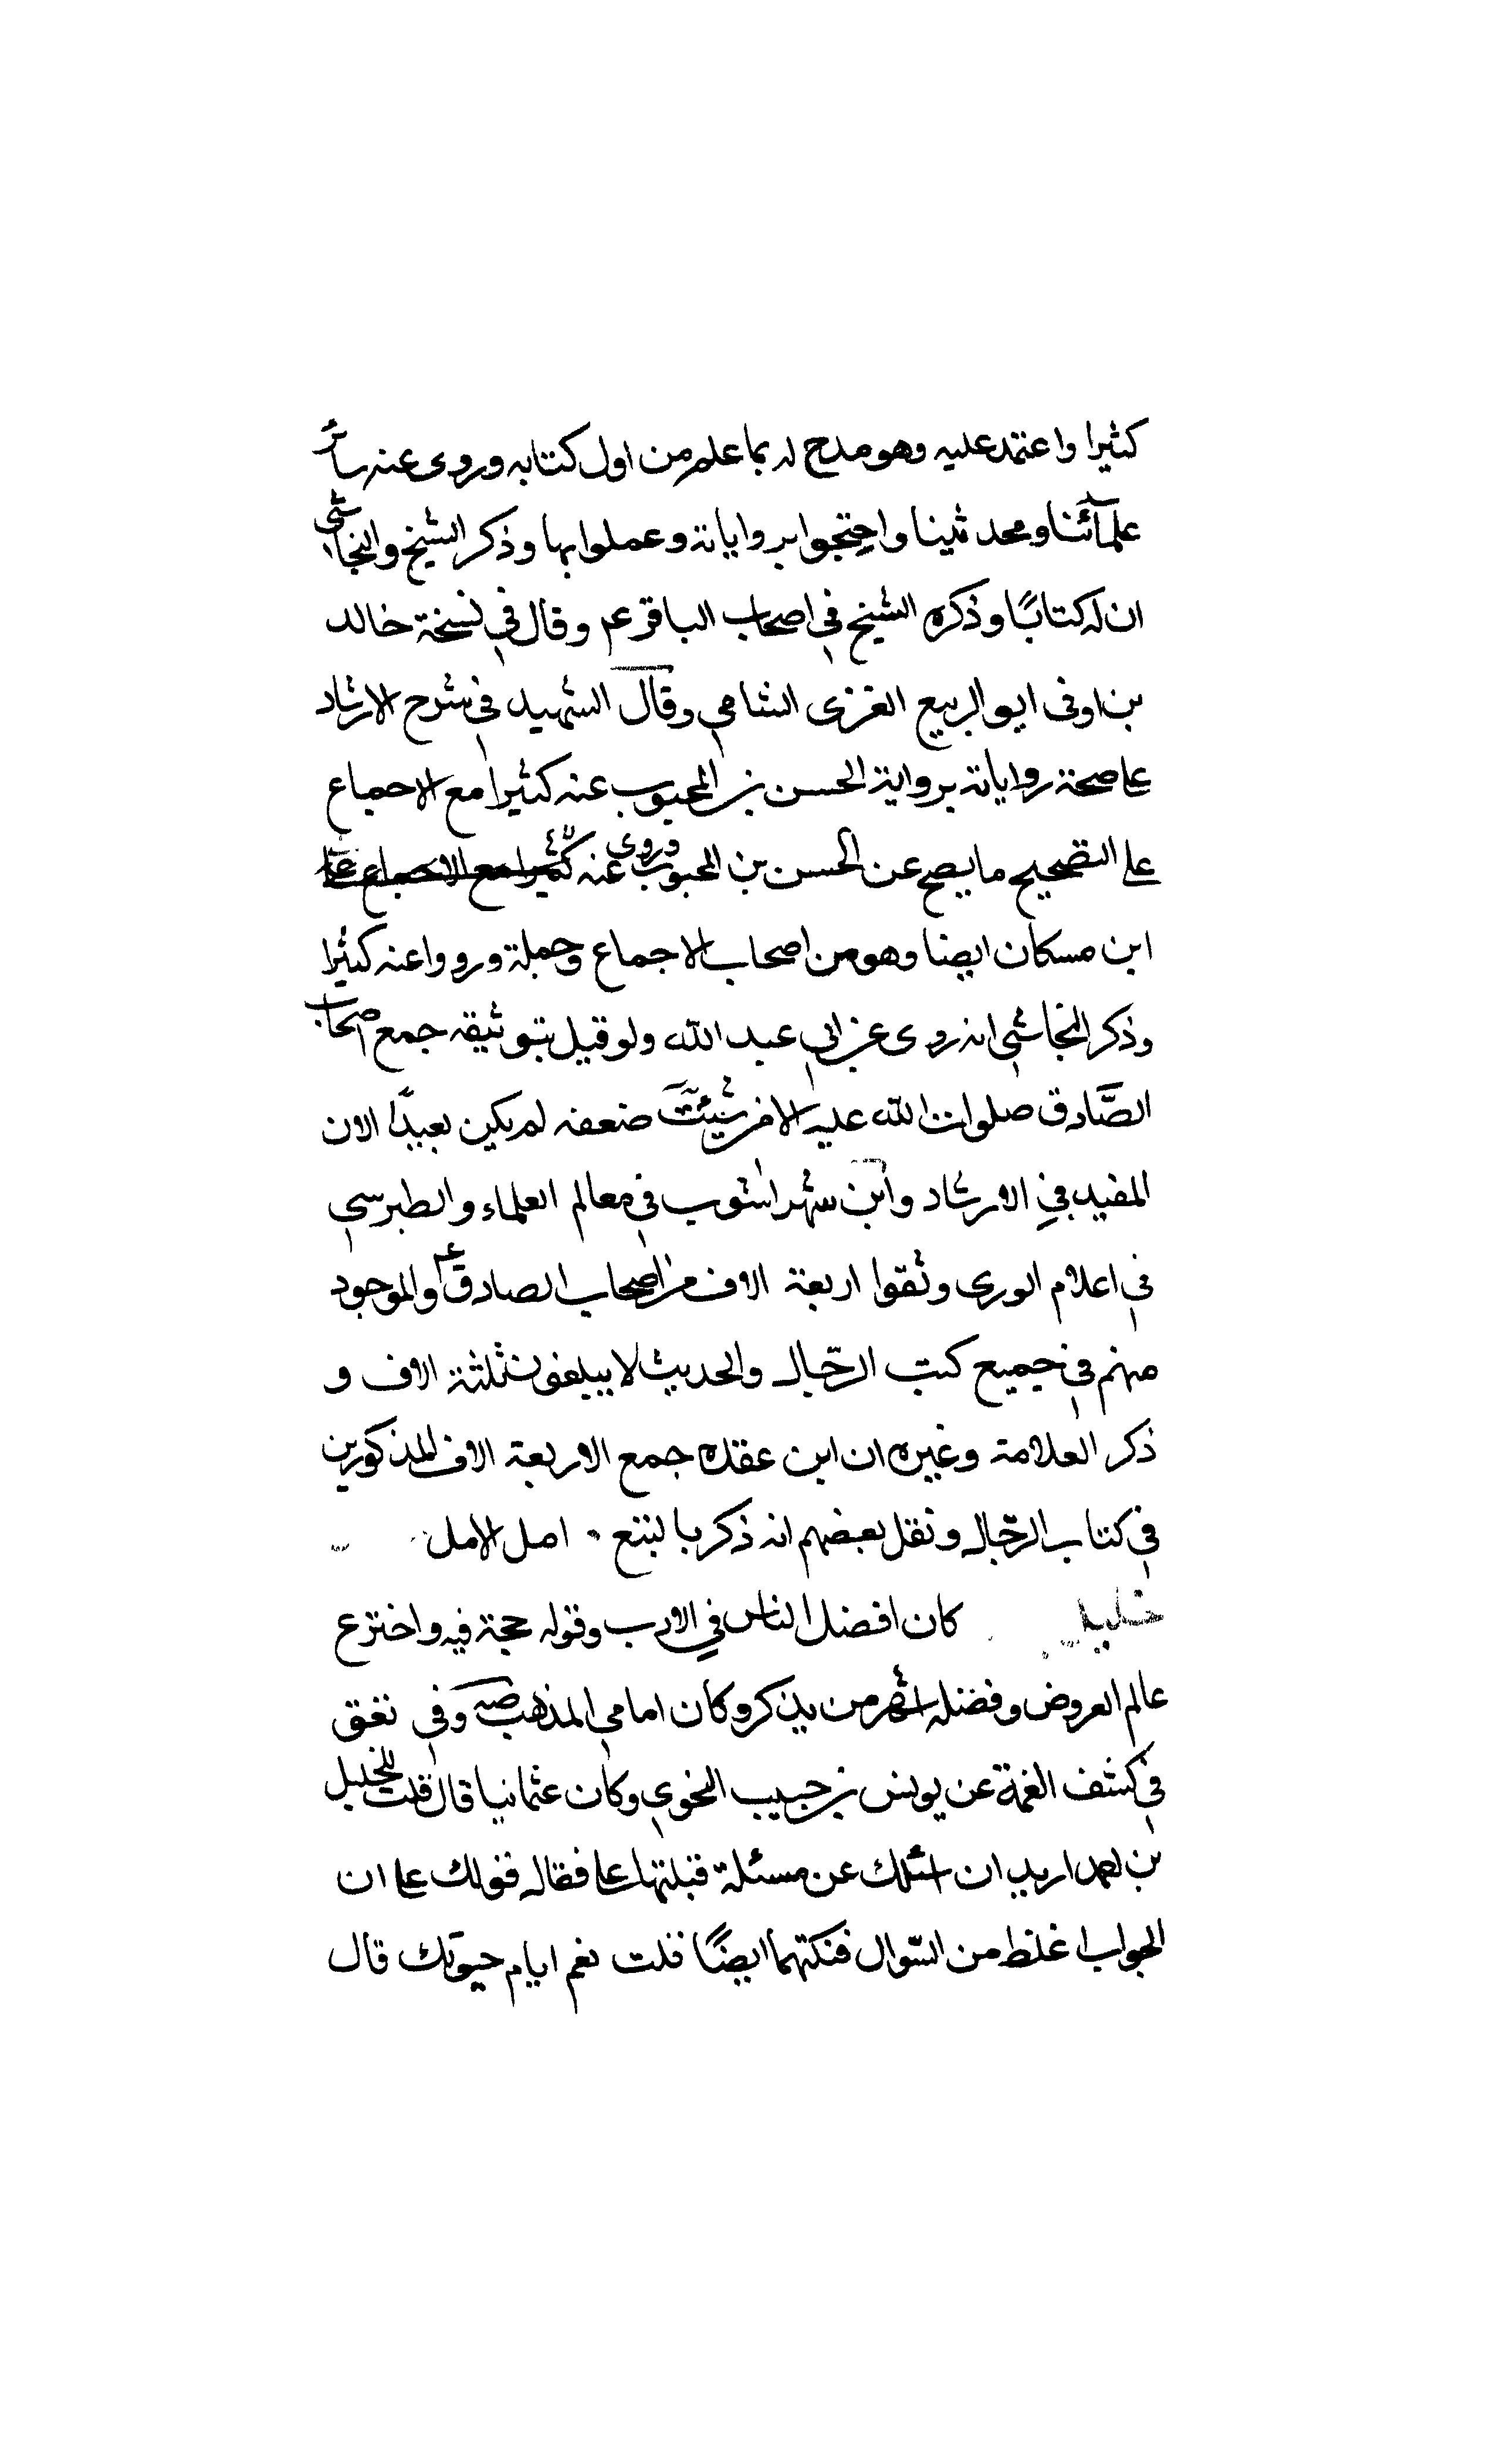 كثيرا واعتمد عليه وهو مدح له بما علم من اول كتابه وروى عنه سائر
علمآئنا ومحدثينا واحتجوا برواياته وعملوا بها وذكر الشيخ والنجاشى
ان له كتابًا وذكره الشيخ في اصحاب الباقر عم وقال في نسخة خالد
بن اوفى ابو الربيع العنزى الشامي وقال الشهيد في شرح الارشاد
على صحة رواياته برواية الحسن بن المحبوب عنه كثيرا مع الاجماع
على التصحيح ما يصح عن الحسن بن المحبوب وروى عنه كثيرا مع الاجماع على
ابن مسكان ايضا وهو من اصحاب الاجماع وجملة ورووا عنه كثيرا
وذكر النجاشي انه روى عن ابي عبد الله ولو قيل بتوثيقه جمع اصحاب
الصَّادق صلوات الله عليه الا من ثبت ضعفه لم يكن بعيدًا لان
المفيد في الارشاد وابن شهراشوب في معالم العلماء والطبرسي
في اعلام الورى وثقوا اربعة الاف من اصحاب الصادق ع والموجود
منهم في جميع كتب الرّجال والحديث لا يبلغون ثلثة الاف و
ذكر العلامة وغيره ان ابن عقده جمع الاربعة الاف المذكورين
في كتاب الرّجال ونقل بعضهم انه ذكر بالتتبع امل الامل
خليل كان افضل الناس في الادب وقوله حجة فيه واخترع
عالم العروض وفضله اشهر من يذكر وكان امامي المذهب صه وفي تعق
في كشف الغمة عن يونس بن حبيب النحوي وكان عثمانيا قال قلت للخليل
بن احمد اريد ان اسئلك عن مسئلة فقال قولك على ان
الجواب اغلظ من السّوال فتكتمها ايضًا قلت نعم ايام حيوتك قال